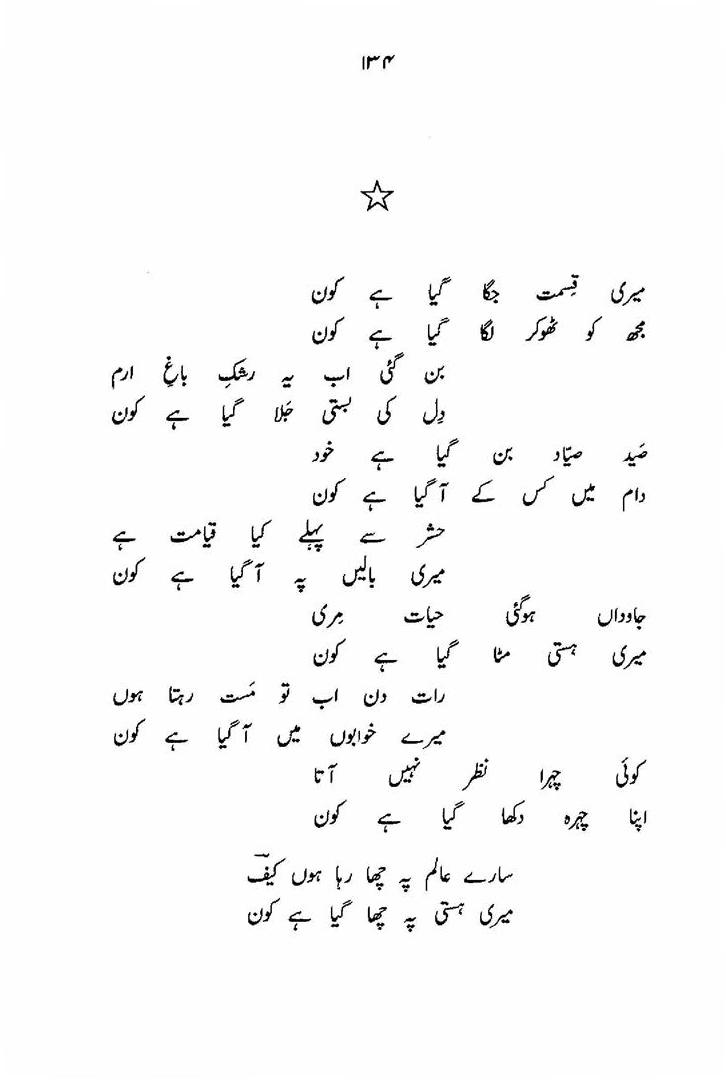 ۱۳۴
میری قِسمت جگا گیا ہے کون
مجھ کو ٹھوکر لگا گیا ہے کون
بن گئی اب یہ رشکِ باغِ ارم
دِل کی بستی جَلا گیا ہے کون
صَید صیّاد بن گیا ہے خود
دام میں کس کے آ گیا ہے کون
حشر سے پہلے کیا قیامت ہے
میری بالیں پہ آ گیا ہے کون
جاوداں ہوگئی حیات مِری
میری ہستی مٹا گیا ہے کون
رات دن اب تو مَست رہتا ہوں
میرے خوابوں میں آ گیا ہے کون
کوئی چہرا نظر نہیں آتا
اپنا چہرہ دکھا گیا ہے کون
سارے عالم پہ چھا رہا ہوں کیفؔ
میری ہستی پہ چھا گیا ہے کون